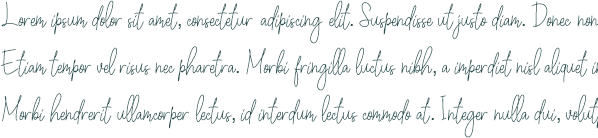 Lorem ipsum dolor sit amet, consectetur adipiscing elit. Suspendisse ut justo diam. Donec non
Etiam tempor vel risus nec pharetra. Morbi fringilla luctus nibh, a imperdiet nisl aliquet
Morbi hendrerit ullamcorper lectus, id interdum lectus commodo at. Integer nulla dui,